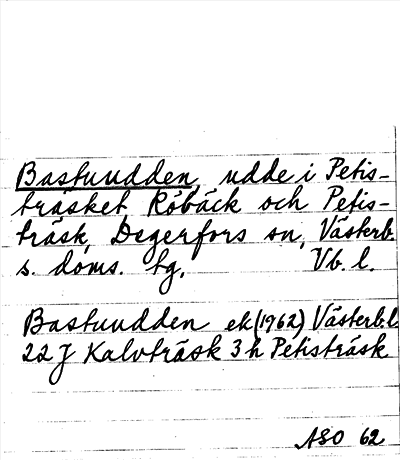 Bastuudden, udde i Petis-
träsket, Röbäck och Petis-
träsk, Degerfors sn, Västerb.
s. doms. tg, Vb. l.
Bastuudden ek (1962) Västerb. l
22 J Kalvträsk 3 h Petisträsk
ASO 62